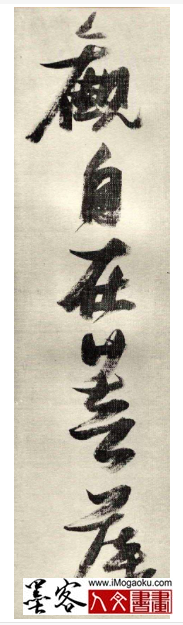 觀自在菩薩
www.iMogaoku.com
墨客人文書畫